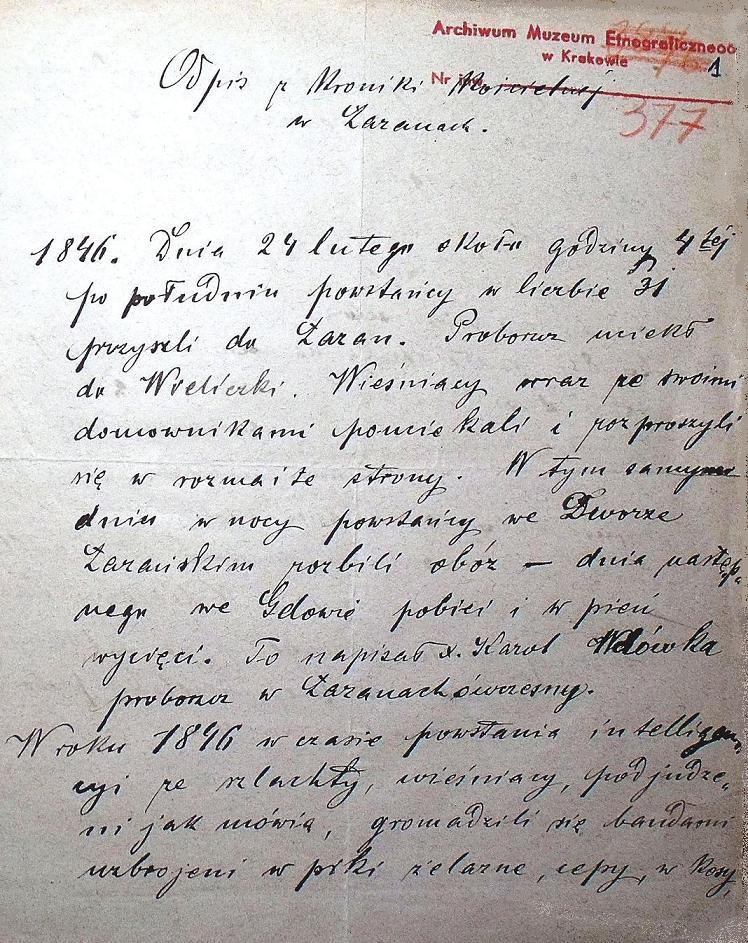 Archiwum Muzeum Etnograficznego
w Krakowie
1
Nr inw.
377
Odpis z Kroniki Kościelnej
w Łazanach.
1846. Dnia 24 lutego około godziny 4tej
po południu powstańcy w liczbie 31
przyszli do Łazan. Proboszcz uciekł
do Wieliczki. Wieśniacy wraz ze swoimi
domownikami pouciekali i rozproszyli
się w rozmaite strony. W tym samym
dniu w nocy powstańcy we Dworze
Łazańskim rozbili obóz — dnia następ-
nego we Gdowie pobici i w pień
wycięci. To napisał x. Karol Wdówka
proboszcz w Łazanach ówczesny.
W roku 1846 w czasie powstania intelligen-
cyi ze szlachty, wieśniacy, podjudze-
ni jak mówią, gromadzili się bandami
uzbrojeni w piki żelazne, cepy, w kosy,